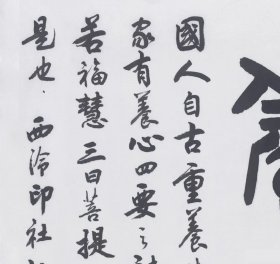 國人自古重養
家有養心四要之
若福慧三曰菩提
是也．西泠印社